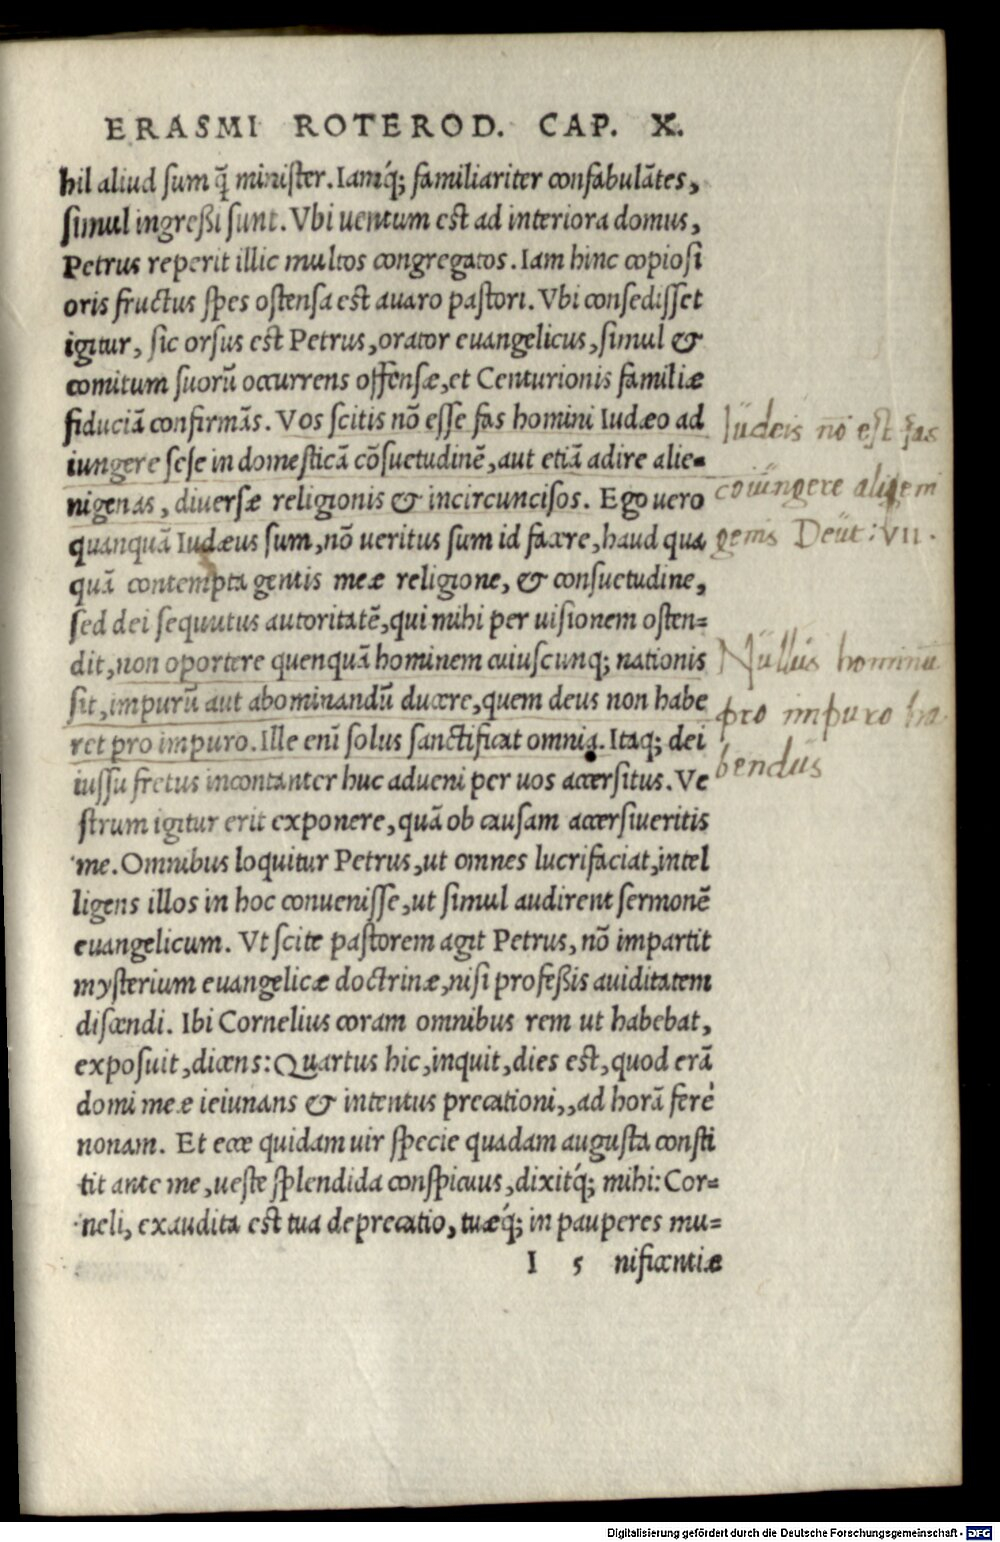 ERASMI ROTEROD. CAP. X.
hil aliud sum q̃ minister. Iamq́; familiariter confabulãtes,
simul ingreßi sunt. Vbi uentum est ad interiora domus,
Petrus reperit illic multos congregatos. Iam hinc copiosi
oris fructus spes ostensa est auaro pastori. Vbi consedisset
igitur, sic orsus est Petrus, orator euangelicus, simul &
comitum suorũ occurrens offensæ, et Centurionis familiæ
fiduciã confirmãs. Vos scitis nõ esse fas homini Iudæo ad
iungere sese in domesticã cõsuetudinẽ, aut etiã adire alie=
nigenas, diuersæ religionis & incircuncisos. Ego uero
quanquã Iudæus sum, nõ ueritus sum id facere, haud qua
quã contempta gentis meæ religione, & consuetudine,
sed dei sequutus autoritatẽ, qui mihi per uisionem osten=
dit, non oportere quenquã hominem cuiuscunq; nationis
sit, impurũ aut abominandũ ducere, quem deus non habe
ret pro impuro. Ille enĩ solus sanctificat omnia. Itaq; dei
iussu fretus incontanter huc adueni per uos accersitus. Ve
strum igitur erit exponere, quã ob causam accersiueritis
me. Omnibus loquitur Petrus, ut omnes lucrifaciat, intel
ligens illos in hoc conuenisse, ut simul audirent sermonẽ
euangelicum. Vt scite pastorem agit Petrus, nõ impartit
mysterium euangelicæ doctrinæ, nisi profeßis auiditatem
discendi. Ibi Cornelius coram omnibus rem ut habebat,
exposuit, dicens: Quartus hic, inquit, dies est, quod erã
domi meæ ieiunans & intentus precationi,, ad horã ferè
nonam. Et ecce quidam uir specie quadam augusta consti
tit ante me, ueste splendida conspicuus, dixitq́; mihi: Cor=
neli, exaudita est tua deprecatio, tuæq́; in pauperes mu=
I 5 nificentiæ
Iudeis nō est fas
coiūngere
genis Deut: VII.
Nullus hominū
pro impuro ha
bendus
Digitalisierung gefördert durch die Deutsche Forschungsgemeinschaft - DFG